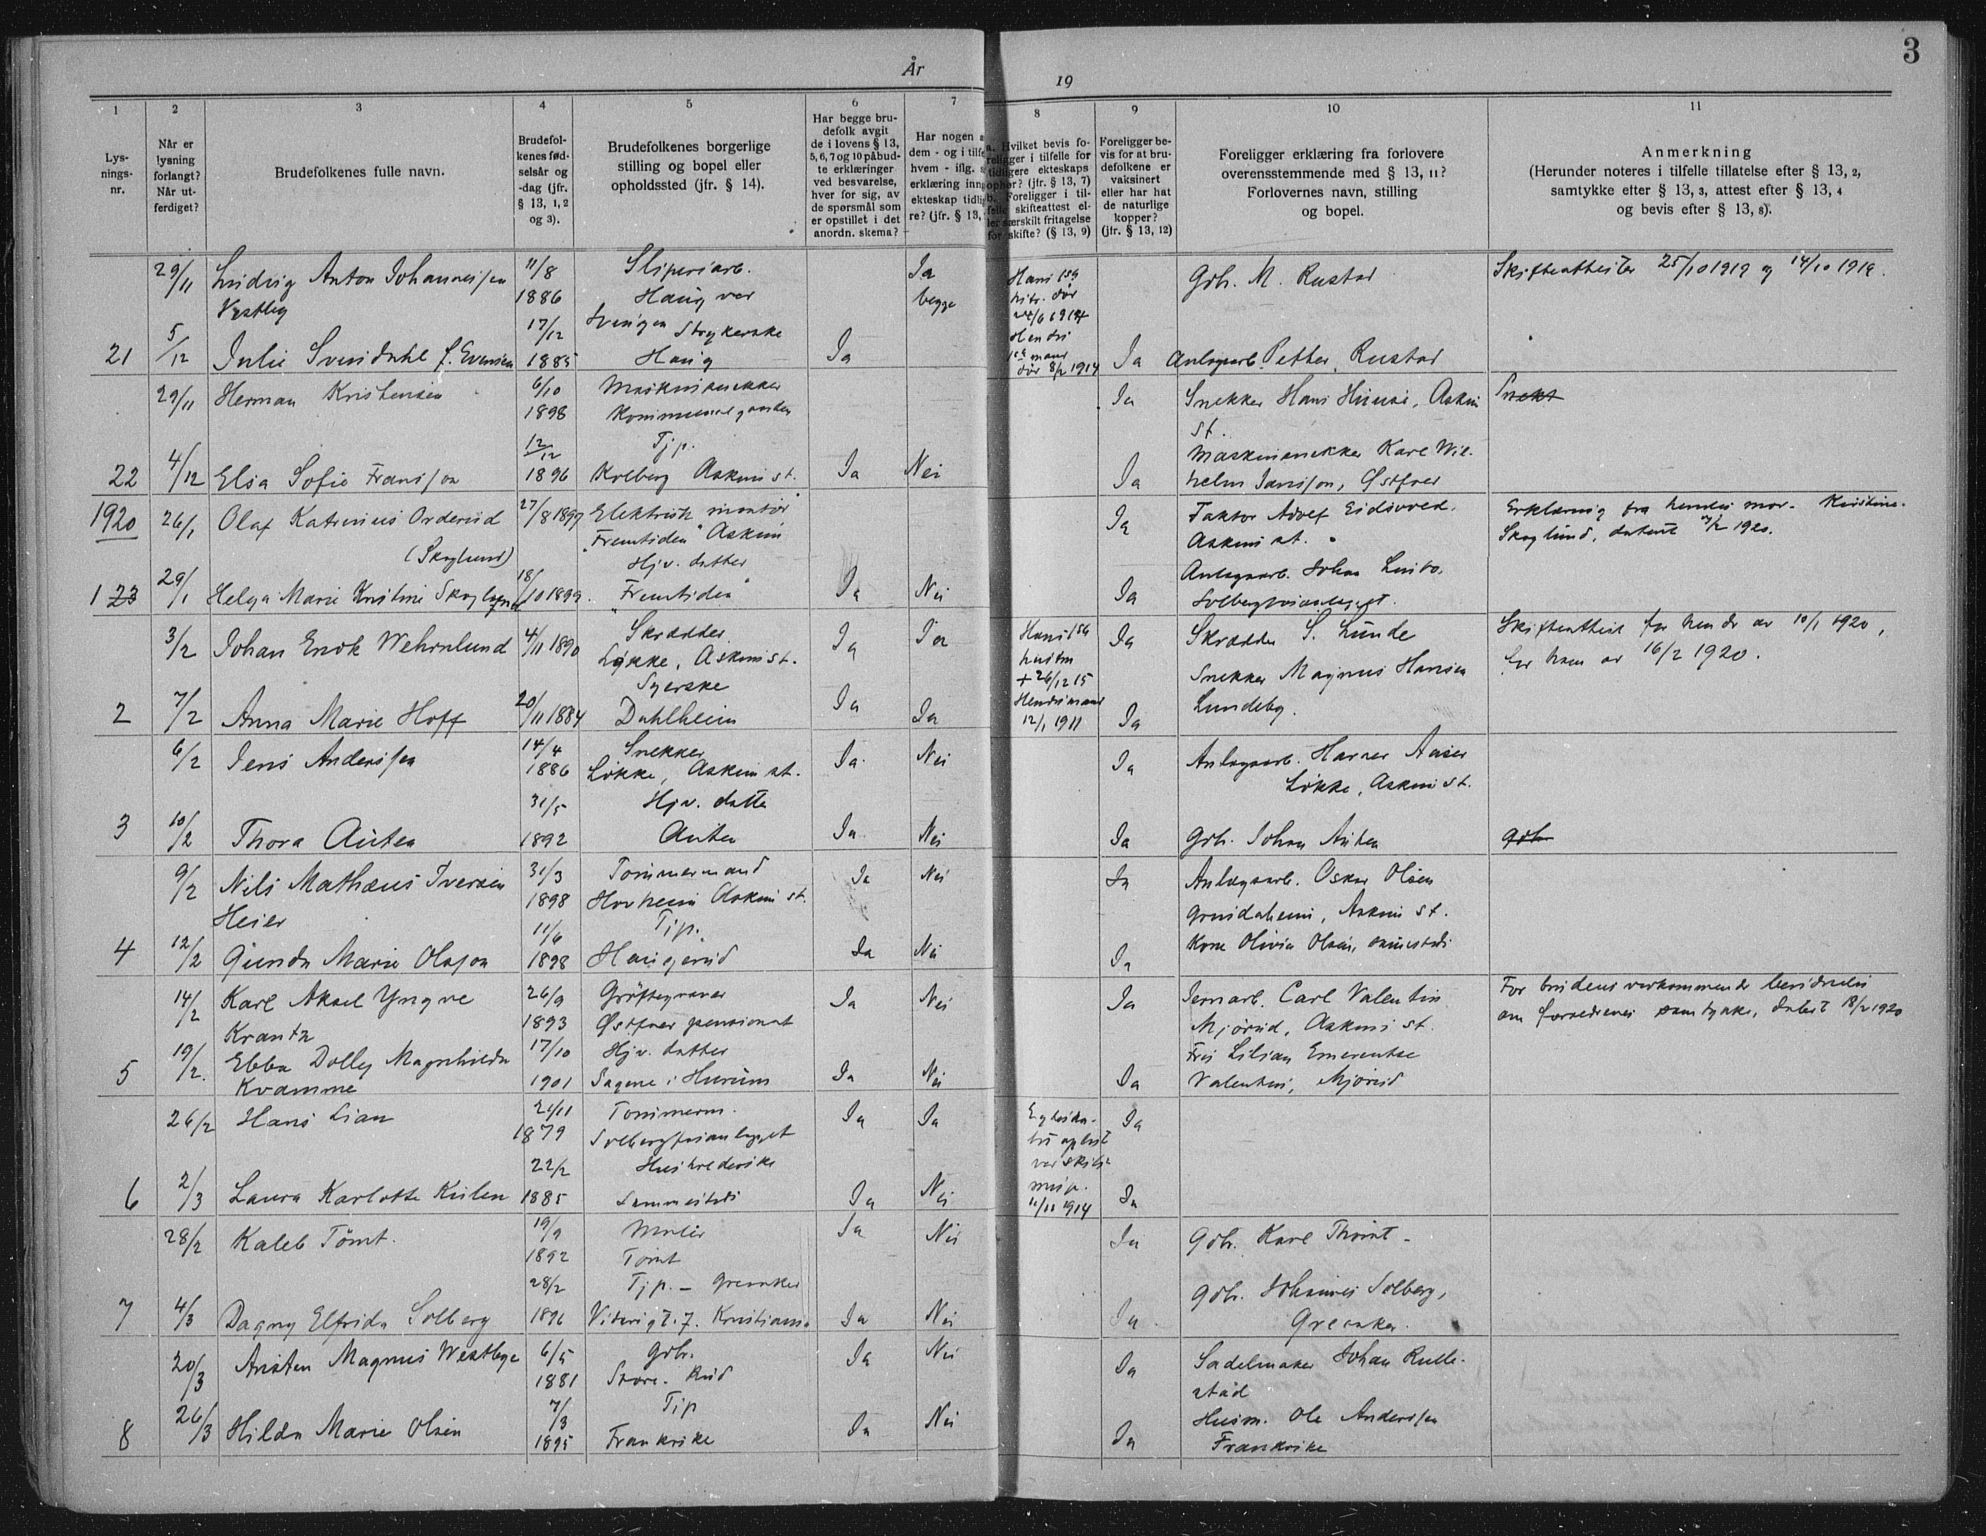 År 19
3
1 2 3 4 5 6 7 8 9 10 11
Lys-
nings-
nr.
Når er
lysning
forlangt?
Når ut-
ferdiget?
Brudefolkenes fulle navn.
Brudefol-
kenes fød-
selsår og
-dag (jfr.
§ 13, 1, 2
og 3).
Brudefolkenes borgerlige
stilling og bopel eller
opholdssted (jfr. § 14).
Har begge bru-
defolk avgit
de i lovens § 13,
5, 6, 7 og 10 påbud-
te erklæringer
ved besvarelse,
hver for sig, av
de spørsmål som
er opstillet i det
anordn. skema?
Har nogen a
dem - og i tilfe
hvem - iflg. s
erklæring inng
ekteskap tidlig
re? (jfr. § 13,
a. Hvilket bevis fo-
religger i tilfelle for
tidligere ekteskaps
ophør? (jfr. § 13, 7)
b. Foreligger i til-
felle skifteattest el-
ler særskilt fritagelse
for skifte? (§ 13, 9)
Foreligger be-
vis for at bru-
defolkene er
vaksinert
eller har hat
de naturlige
kopper?
(jfr. § 13, 12)
Foreligger erklæring fra forlovere
overensstemmende med § 13, 11?
Forlovernes navn, stilling
og bopel.
Anmerkning
(Herunder noteres i tilfelle tillatelse efter § 13, 2,
samtykke efter § 13, 3, attest efter § 13, 4
og bevis efter § 13, 8).
29/11 Ludvig Anton Johannessen 11/8 Sliperiarb. Ja Hans 1ste Gdb. M. Rustad Skifteattester 25/10 1919 og 14/10 1919.
Vestby 1886 Haug ver begge hstr. dør
24/6 1914
5/12 17/12 Svingen Strykerske Hendes
21 Julie Svendahl f. Evensen 1885 Haug Ja 1ste mand Ja Anlægsarb. Petter Rustad
dør 8/2 1914
29/11 Herman Kristensen 6/10 Maskinsnekker Ja Snekker Hans Huuse, Askim Snekk
1898 Kommunegaarden st.
12/12 Tjp. Maskinsnekker Karl Wil-
22 4/12 Elsa Sofie Fransson 1896 Kolberg Askim st. Ja Nei Ja helm Jansson, Østfoss
1920 26/1 Olaf Katrinius Orderud 27/8 1899 Elektrisk montør Ja Faktor Adolf Eidsvold. Erklæring fra hendes mor Kristine
(Skoglund) "Fremtiden" Askim Askim st. Skoglund, datert 2/2 1920.
Hjv. datter Anlægsarb. Johan Lusbo,
1 23 29/1 Helga Marie Kristine Skoglund 18/10 1899. "Fremtiden" Ja Nei Ja Solbergfossanlegget.
3/2 Johan Enok Wehrnlund 4/11 1890 Skrædder Ja Ja Hans 1ste Ja Skrædder S. Lunde Skifteattest for hende av 10/1 1920,
Løkke, Askim st. hustru Snekker Magnus Hansen for ham av 16/2 1920.
Syerske + 26/12 15 Lundeby.
2 7/2 Anna Marie Hoff 20/11 1884 Dahlheim Ja Ja Hendes mand Ja
12/1 1911
6/2 Jens Anderssen 14/4 Snekker Ja Nei Ja Anlægsarb. Harner Aaser
1886 Løkke, Askim st. Løkke, Askim st.
31/5 Hjv. datter
3 10/2 Thora Auten 1892 Auten Ja Nei Ja Gdb. Johan Auten Gdb
9/2 Nils Mathæus Iversen 31/3 Tømmermand Ja Nei Ja Anlægsarb. Oskar Olsen
Heier 1898 Hovheim Askim st. Grindaheim, Askim st.
11/6 Tjp. Kone Olivia Olsen, sammesteds
4 12/2 Gunda Marie Olsson 1898 Haugerud Ja Nei Ja
14/2 Karl Aksel Yngve 26/9 Grøftegraver Ja Nei Ja Jernarb. Carl Valentin For brudens vedkommende bevidnelse
Krantz 1893 Østfoss pensionat Mjørud, Askim st. om forældrenes samtykke, datert 18/2 1920
19/2. Ebba Dolly Magnhilda 17/10 Hjv. datter Frøs Lilian Emerentse
5 Kvamme 1901 Sagene i Hurum Ja Nei Ja Valentin, Mjørud
26/2 Hans Lian 21/11 Tømmerm. Ja Ja Egteska- Ja
1879 Solbergfossanlegget bet opløst
22/2 Husholderske ved skils-
6 2/3 Laura Karlotte Kulen 1885 Sammesteds Ja Nei misse. Ja
11/11 1914
28/2 Kaleb Tömt. 19/9 Maler Ja Nei Ja Gdb. Karl Thömt -
1892 Tömt
28/2 Tjp. - Greaaker Gdb. Johannes Solberg,
7 4/3 Dagny Elfrida Solberg 1896 Ja Nei Ja Greaaker.
20/3 Ansten Magnus Westbye 6/5 Gdb. Ja Nei Ja Sadelmaker Johan Rulle-
1881 Store-Rud stad
26/3 7/3 Tjp Husm. Ole Anderssen
8 Hilda Marie Olsen 1895 Frankrike Ja Nei Ja Frankrike